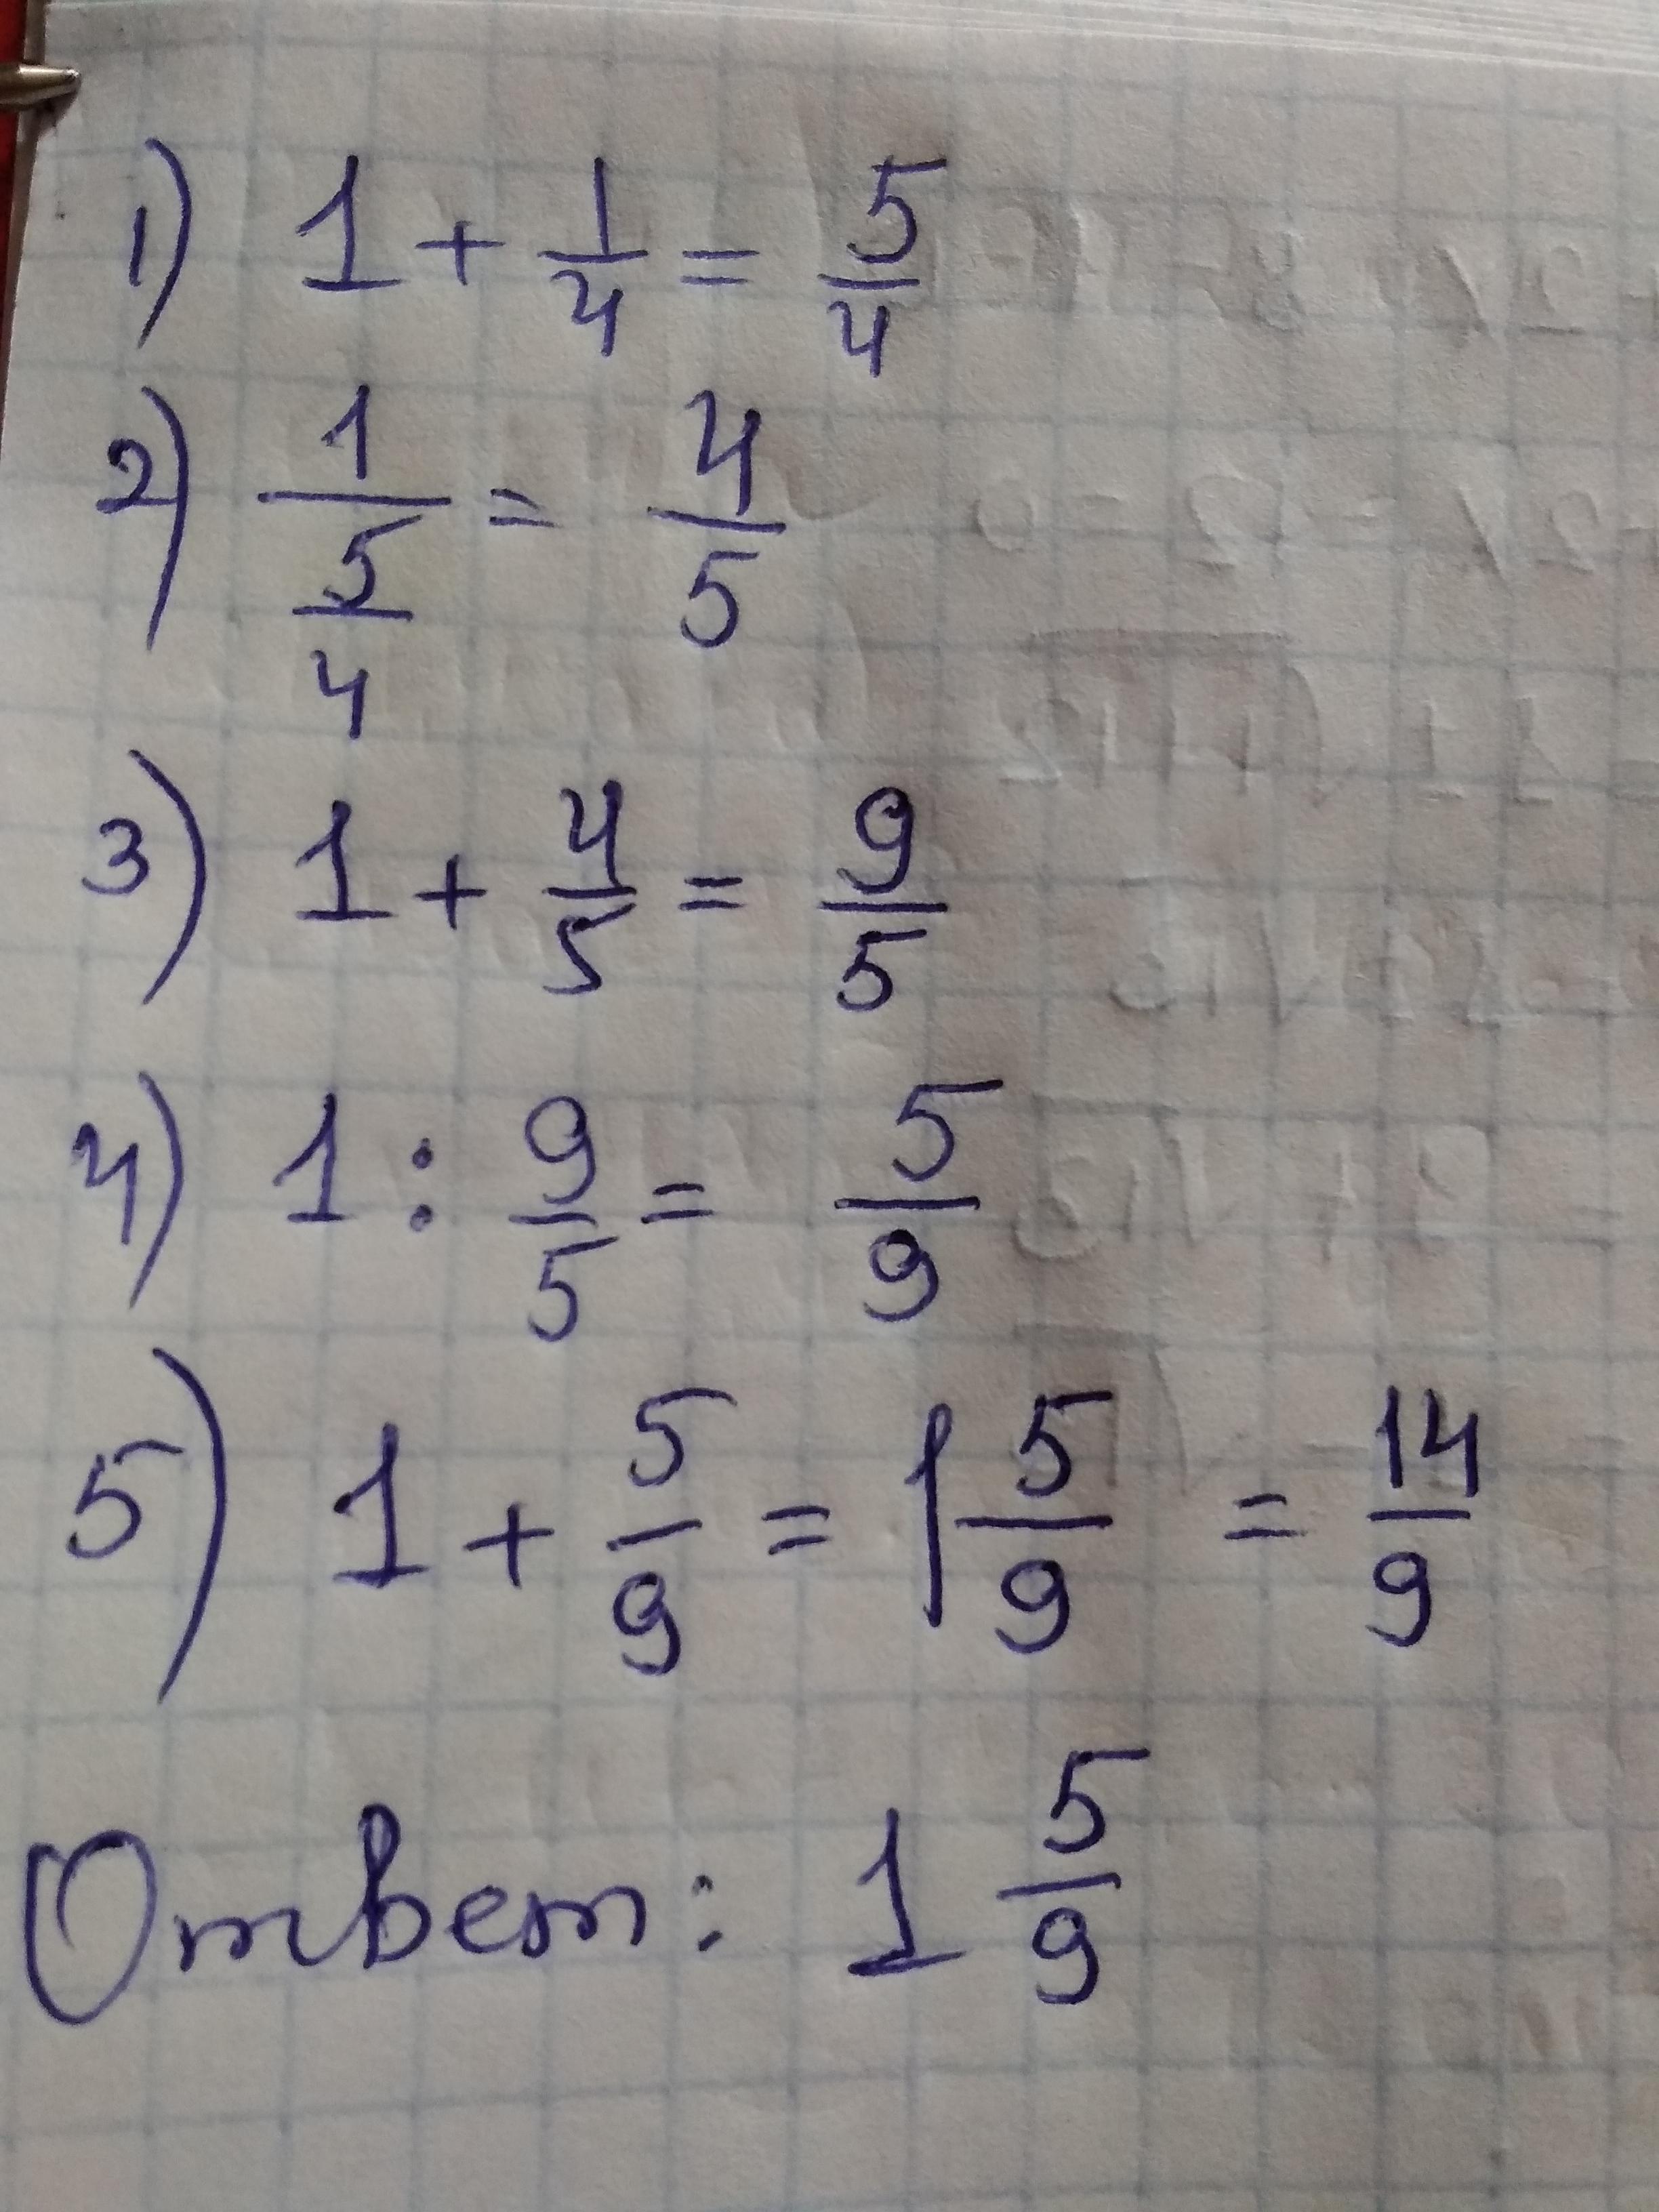 1) 1 + 1/4 = 5/4
2) 1/(5/4) = 4/5
3) 1 + 4/5 = 9/5
4) 1 : 9/5 = 5/9
5) 1 + 5/9 = 1 5/9 = 14/9
Ответ: 1 5/9